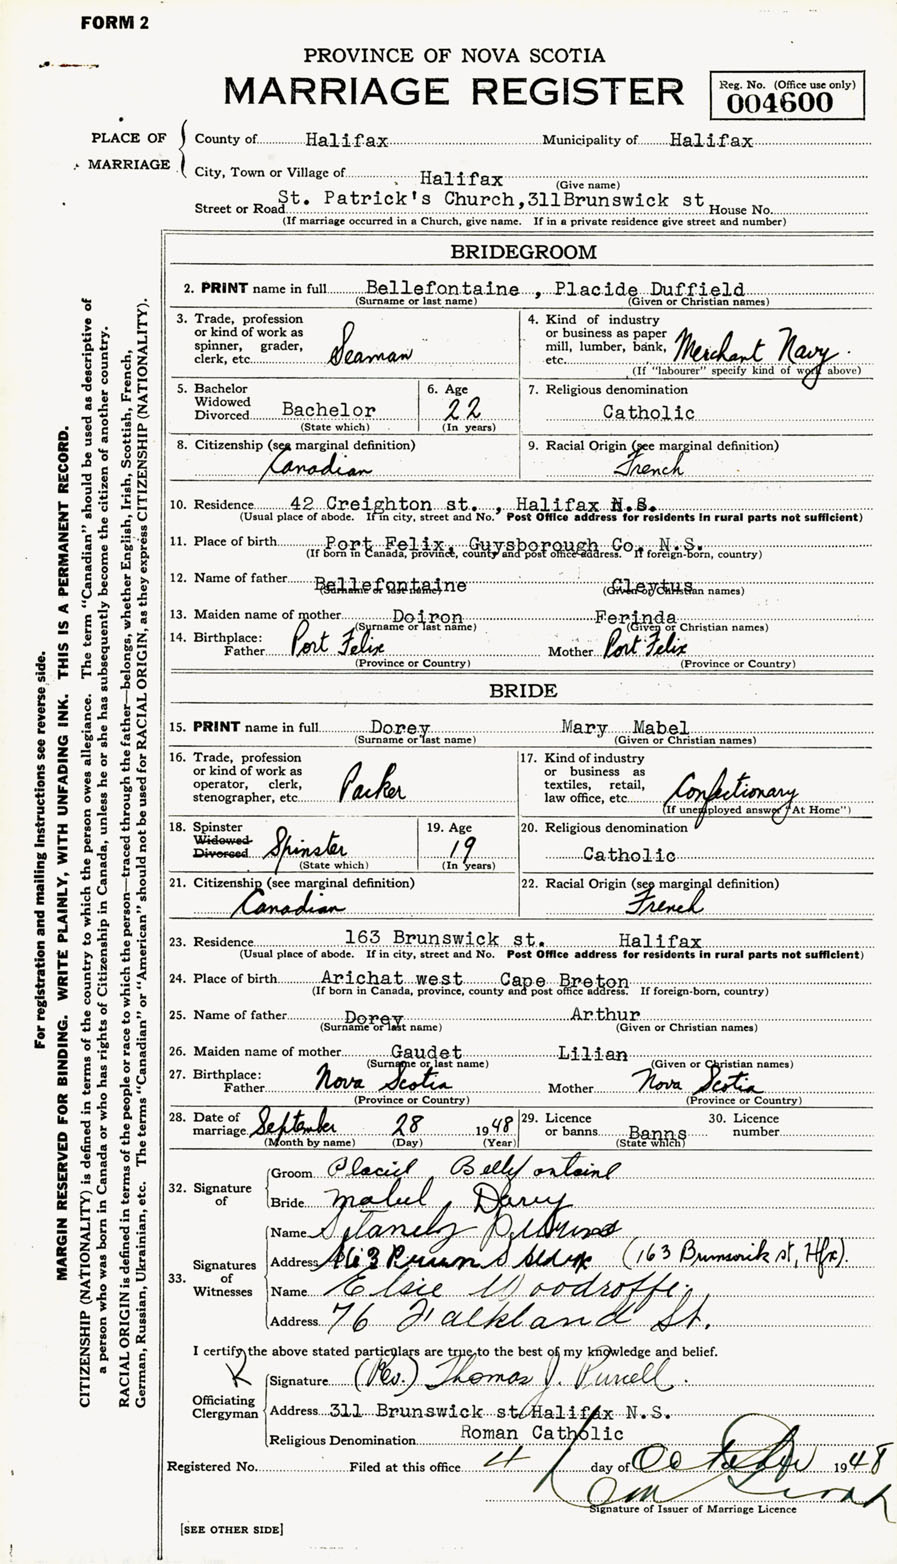 FORM 2
PROVINCE OF NOVA SCOTIA
MARRIAGE REGISTER
Reg. No. (Office use only)
004600
PLACE OF MARRIAGE
County of Halifax Municipality of Halifax
City, Town or Village of Halifax
(Give name)
Street or Road St. Patrick's Church, 311 Brunswick st House No.
(If marriage occurred in a Church, give name. If in a private residence give street and number)
BRIDEGROOM
2. PRINT name in full Bellefontaine , Placide Duffield
(Surname or last name) (Given or Christian names)
3. Trade, profession or kind of work as spinner, grader, clerk, etc. Seaman
4. Kind of industry or business as paper mill, lumber, bank, etc. Merchant Navy.
(If "labourer" specify kind of work above)
5. Bachelor Widowed Divorced Bachelor
(State which)
6. Age 22
(In years)
7. Religious denomination
Catholic
8. Citizenship (see marginal definition)
Canadian
9. Racial Origin (see marginal definition)
French
10. Residence 42 Creighton st. , Halifax N.S.
(Usual place of abode. If in city, street and No. Post Office address for residents in rural parts not sufficient)
11. Place of birth Port Felix, Guysborough Co, N.S.
(If born in Canada, province, county and post office address. If foreign-born, country)
12. Name of father Bellefontaine Cleytus
(Surname or last name) (Given or Christian names)
13. Maiden name of mother Doiron Ferinda
(Surname or last name) (Given or Christian names)
14. Birthplace:
Father Port Felix Mother Port Felix
(Province or Country) (Province or Country)
BRIDE
15. PRINT name in full Dorey Mary Mabel
(Surname or last name) (Given or Christian names)
16. Trade, profession or kind of work as operator, clerk, stenographer, etc. Packer
17. Kind of industry or business as textiles, retail, law office, etc. Confectionary
(If unemployed answer "At Home")
18. Spinster Widowed Divorced Spinster
(State which)
19. Age 19
(In years)
20. Religious denomination
Catholic
21. Citizenship (see marginal definition)
Canadian
22. Racial Origin (see marginal definition)
French
23. Residence 163 Brunswick st. Halifax
(Usual place of abode. If in city, street and No. Post Office address for residents in rural parts not sufficient)
24. Place of birth Arichat west Cape Breton
(If born in Canada, province, county and post office address. If foreign-born, country)
25. Name of father Dorey Arthur
(Surname or last name) (Given or Christian names)
26. Maiden name of mother Gaudet Lilian
(Surname or last name) (Given or Christian names)
27. Birthplace:
Father Nova Scotia Mother Nova Scotia
(Province or Country) (Province or Country)
28. Date of marriage September 28 1948
(Month by name) (Day) (Year)
29. Licence or banns Banns
(State which)
30. Licence number
32. Signature of
Groom Placid Bellefontaine
Bride Mabel Darey
33. Signatures of Witnesses
Name Stanely
Address 163 (163 Brunswick st, Hfx).
Name Elsie Woodroffe.
Address 76 Falkland St.
I certify the above stated particulars are true to the best of my knowledge and belief.
Officiating Clergyman
Signature (Rev.) Thomas J. Purcell.
Address 311 Brunswick st Halifax N.S.
Religious Denomination Roman Catholic
Registered No. Filed at this office 4 day of October 1948
Signature of Issuer of Marriage Licence
[SEE OTHER SIDE]
For registration and mailing instructions see reverse side.
MARGIN RESERVED FOR BINDING. WRITE PLAINLY, WITH UNFADING INK. THIS IS A PERMANENT RECORD.
CITIZENSHIP (NATIONALITY) is defined in terms of the country to which the person owes allegiance. The term "Canadian" should be used as descriptive of
a person who was born in Canada or who has rights of Citizenship in Canada, unless he or she has subsequently become the citizen of another country.
RACIAL ORIGIN is defined in terms of the people or race to which the person—traced through the father—belongs, whether English, Irish, Scottish, French,
German, Russian, Ukrainian, etc. The terms "Canadian" or "American" should not be used for RACIAL ORIGIN, as they express CITIZENSHIP (NATIONALITY).